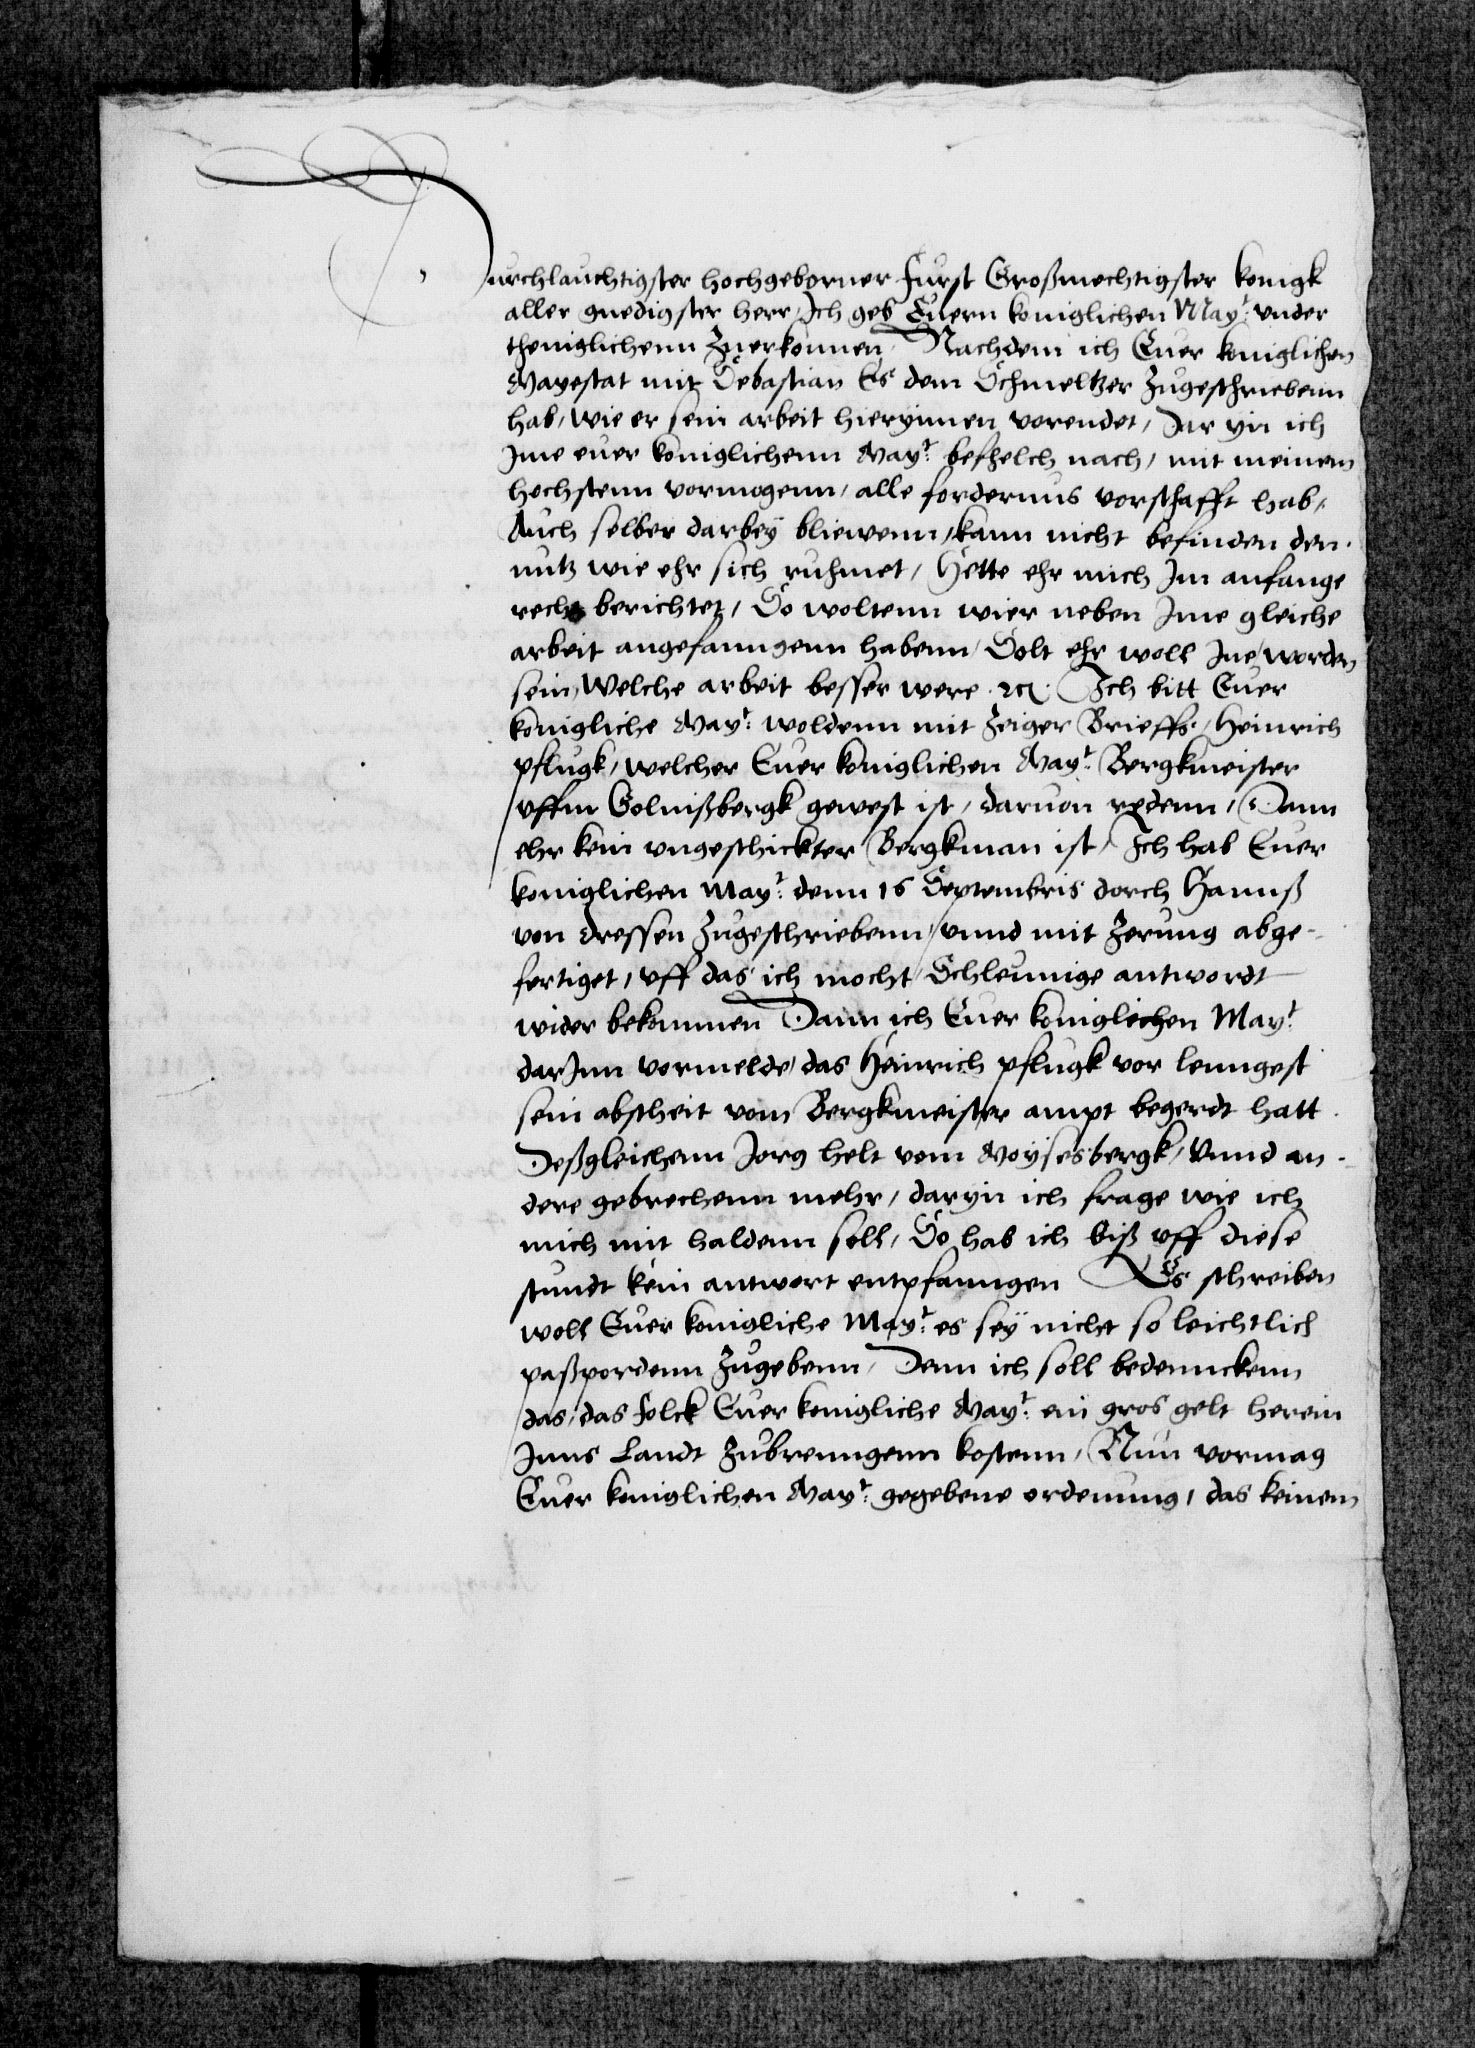 Durchlauchtigster hochgeborner Furst Großmechtigster konigk
aller gnedigster herr, Ich geb Euern koniglichen Mayt: under
theniglichenn Zuerkonnen, Nachdem ich Euer koniglichen
Mayestat mit Sebastian Es dem Schmeltzer Zugeschriebenn
hab, wie er sein arbeit hierynnen vorendet, Dar yn ich
Ime euer koniglichenn Mayt: befhelch nach, mit meinem
hochstenn vormogenn, alle fordernus vorschafft hab,
Auch selber darbey bliewenn, kann nicht befinden den
nutz wie ehr sich ruhmet, Hette ehr mich Im anfange
recht berichtet, So woltenn wier neben Ime gleiche
arbeit angefanngenn habenn, Solt ehr woll Ine worden
sein, Welche arbeit besser were. rc. Ich bitt Euer
konigliche Mayt: woldenn mit Zeiger Brieffs, Heinrich
pflugk, welcher Euer koniglichen Mayt: Bergkmeister
uffm Golnißbergk gewest ist, daruon redenn, Dann
ehr kein ungeschickter Bergkman ist, Ich hab Euer
koniglichen Mayt: denn 16 Septembris dorch Hannß
von dressen Zugeschriebenn, unnd mit Zerung abge-
fertiget, uff das ich mocht Schleunige antwordt
wider bekommen Dann ich Euer koniglichen Mayt:
darInn vormelde, das Heinrich pflugk vor lenngest
sein abscheit vom Bergkmeister ampt begerdt hatt.
Deßgleichenn Jorg helt vom Moysesbergk, Unnd an-
dere gebrechenn mehr, daryn ich frage wie ich
mich mit haldenn soll, So hab ich biß uff diese
stundt kein antwort entpfanngen Es schreiben
woll Euer konigliche Mayt: es sey nicht so leichtlich
paßpordenn Zugebenn, Denn ich soll bedennckenn
das, das folck Euer konigliche Mayt: ein gros gelt herein
Inns Landt Zubrenngenn kostenn, Nun vormag
Euer koniglichen Mayt: gegebene ordenung, das keinem